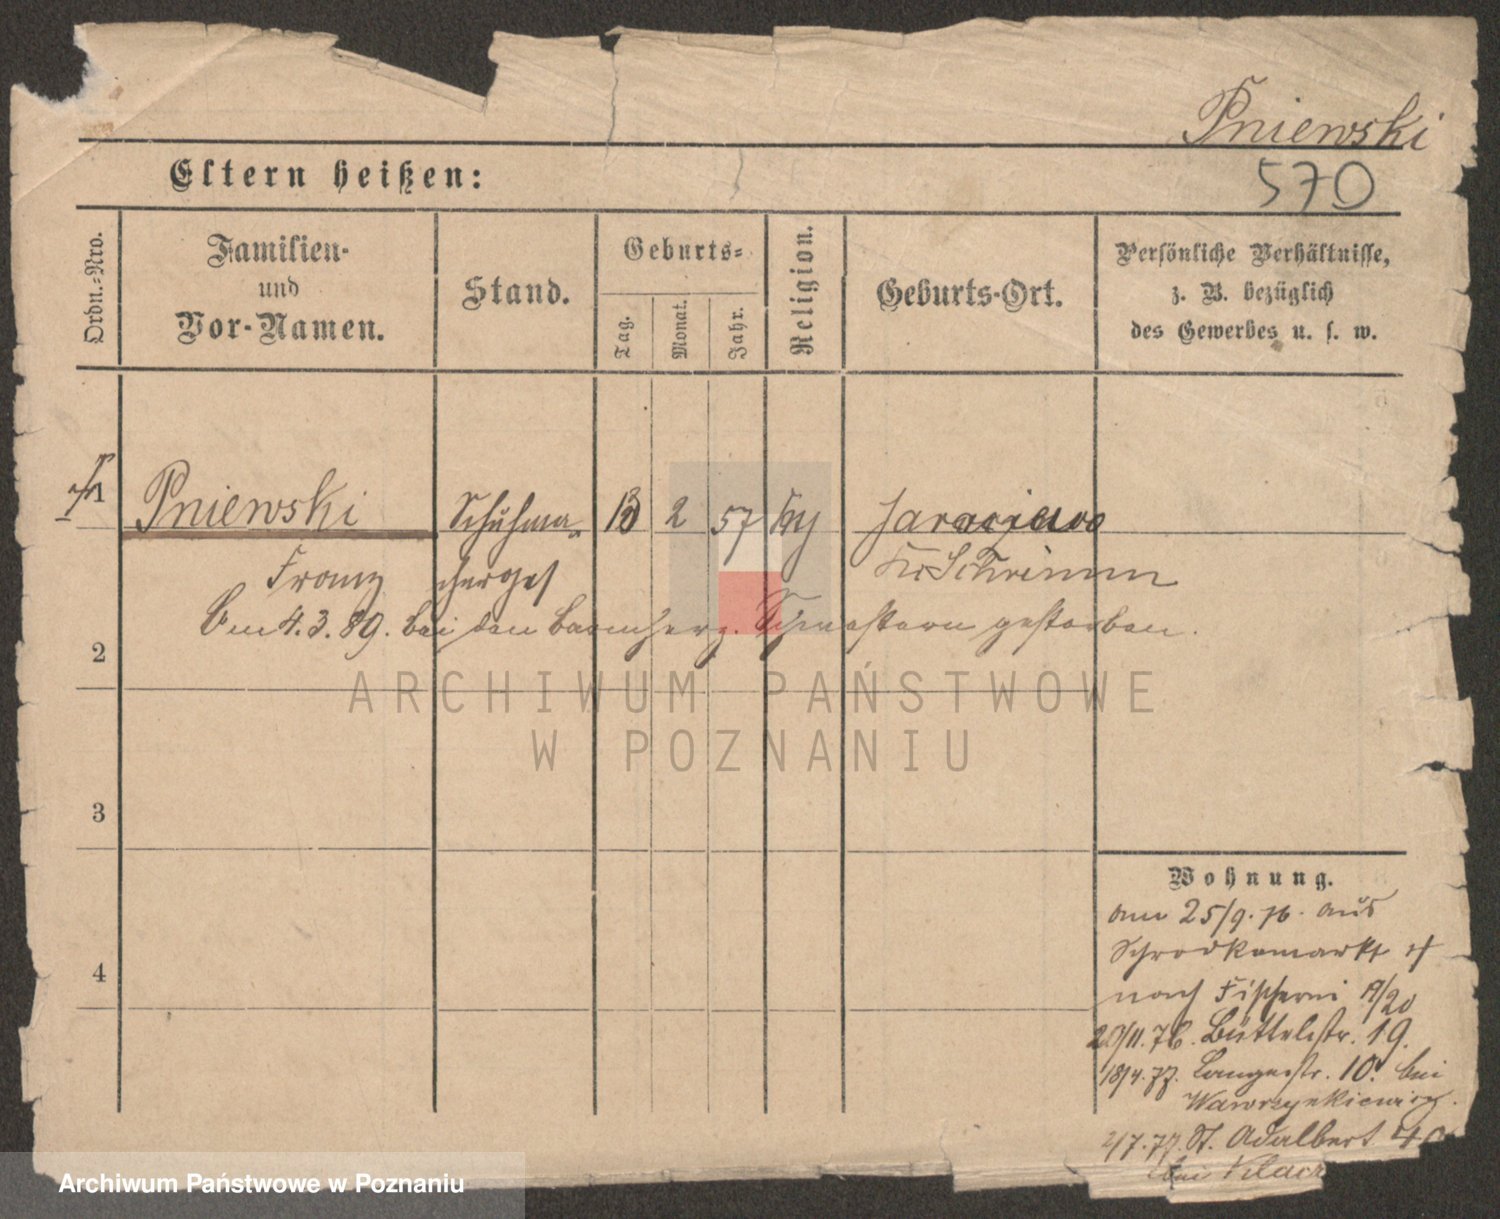 Pniewski
570
Eltern heißen:
Ordn.-Nro.
Familien-
und
Vor-Namen.
Stand.
Geburts-
Tag.
Monat.
Jahr.
Religion.
Geburts-Ort.
Persönliche Verhältnisse,
z. B. bezüglich
des Gewerbes u. s. w.
1 Pniewski Schuhma- 2 57 Jaraczewo
Franz cherges Kr Schrimm
4.3.89. bei den barmherz. Schwestern gestorben.
2
ARCHIWUM PAŃSTWOWE
W POZNANIU
3
Wohnung.
am 25/9.76. aus
Schrodkamarkt
nach Fischerei 19/20
4
20/11.76. Büttelstr. 19.
18/4.77. Langestr. 10. bei
Wawrzynkiewicz.
2/7.77. St. Adalbert 40
bei
Archiwum Państwowe w Poznaniu